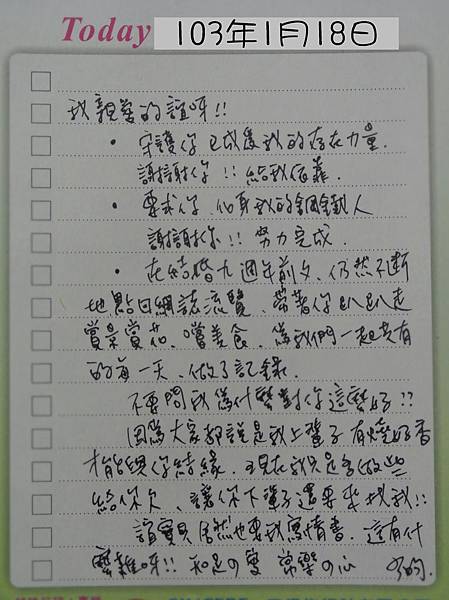 Today 103年1月18日
我親愛的誼呀!!
• 守護你 已成為我的存在力量.
謝謝你!! 給我依靠.
• 要求你 化身我的鋼鐵人
謝謝你!! 努力完成.
• 在結婚九週年前夕、仍然不斷
地點日網誌流覽、帶著你趴趴走
賞景賞花、嚐美食、為我們一起共有
的每一天、做了記錄.
不要問我為什麼對你這麼好??
因為大家都說是我上輩子有燒好香
才能與你結緣、現在我只是多做些
給你欠、讓你下輩子還要來找我!!
誼寶貝居然也要我寫情書、這有什
麼難呀!! 知足の隻 常樂の心